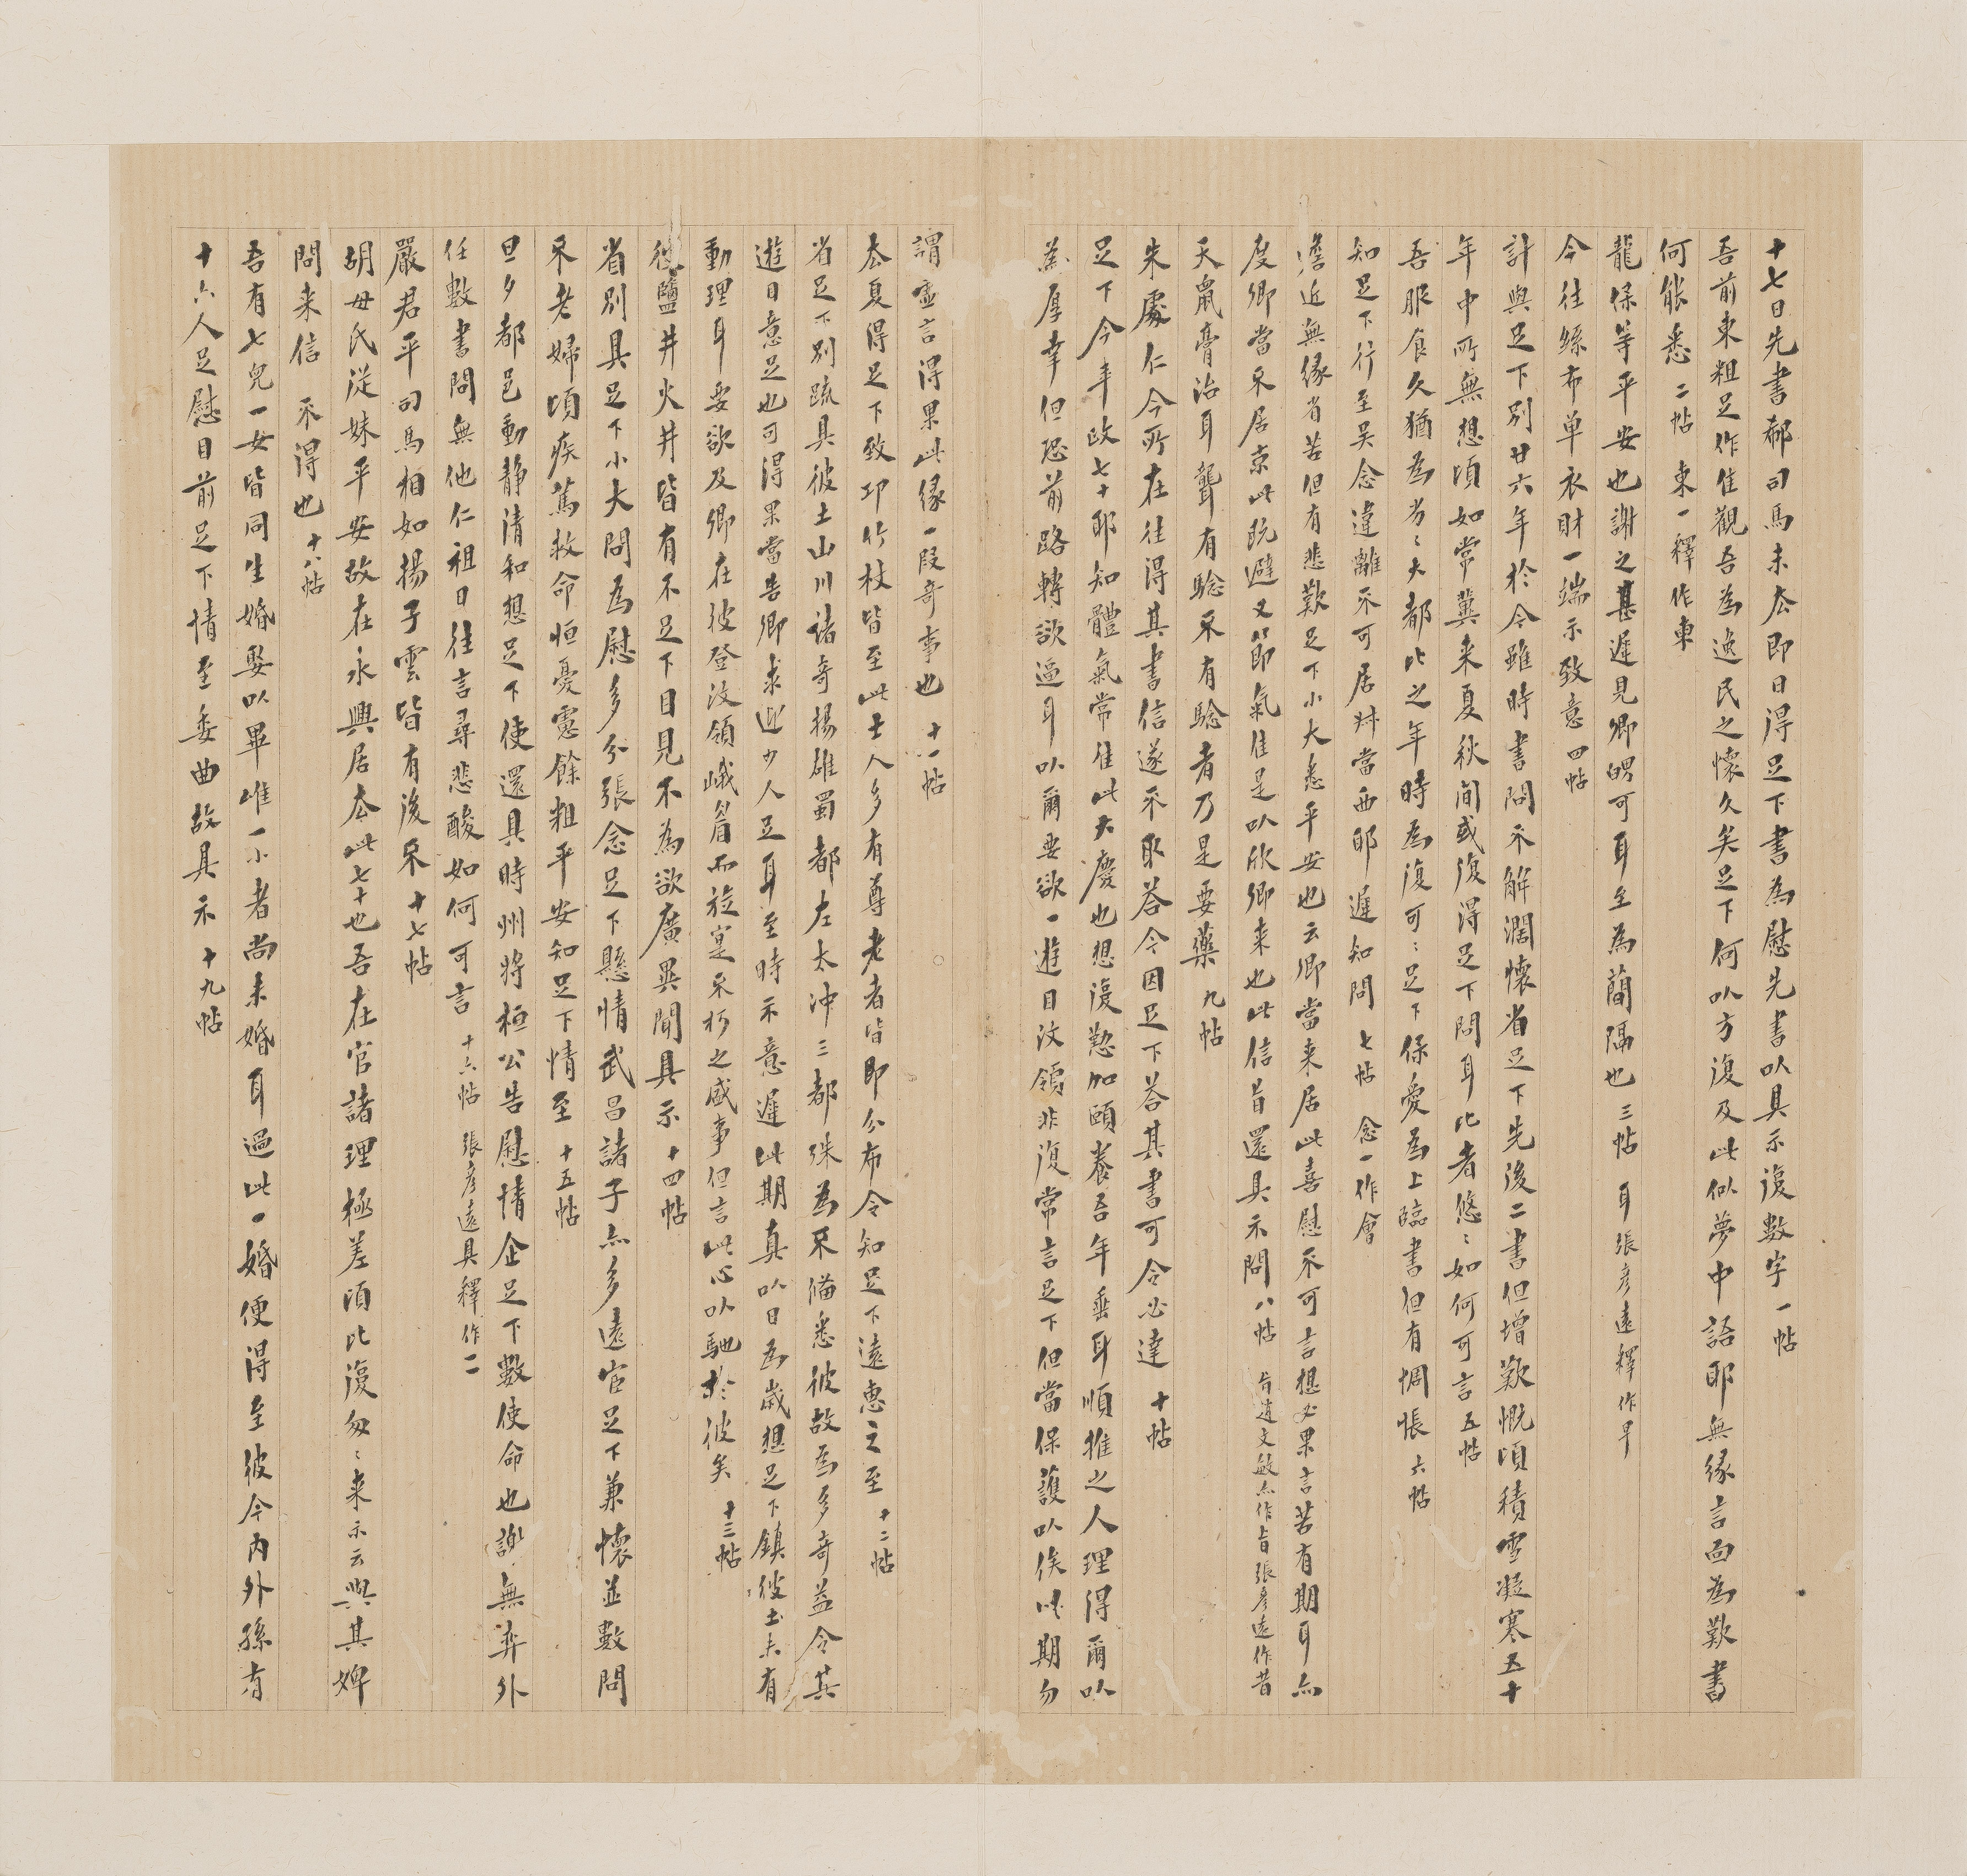 十七日先書郗司馬未去即日得足下書為慰先書以具示復數字 一帖
吾前東粗足作佳觀吾為逸民之懷久矣足下何以方復及此似夢中語耶無緣言面為歎書
何能悉 二帖 東一釋作車
龍保等平安也謝之甚遲見卿舅可耳至為簡隔也 三帖 耳張彥遠釋作早
今往絲布單衣財一端示致意 四帖
計與足下別廿六年於今雖時書問不解濶懷省足下先後二書但增歎慨頃積雪凝寒五十
年中所無想頃如常冀来夏秋間或復得足下問耳比者悠〻如何可言 五帖
吾服食久猶為劣〻大都比之年時為復可〻足下保愛為上臨書但有惆悵 六帖
知足下行至吳念違離不可居叔當西耶遲知問 七帖 念一作會
瞻近無緣省苦但有悲歎足下小大悉平安也云卿當来居此喜慰不可言想必果言苦有期耳亦
度卿當不居京此既避又節氣佳是以欣卿来也此信旨還具示問 八帖 旨趙文敏亦作旨張彥遠作昔
天鼠膏治耳聾有驗不有驗者乃是要藥 九帖
朱處仁今所在往得其書信遂不取荅今因足下荅其書可令必達 十帖
足下今年政七十耶知體氣常佳此大慶也想復懃加頤養吾年垂耳順推之人理得爾以
為厚幸但恐前路轉欲逼耳以爾要欲一遊目汶領非復常言足下但當保護以俟此期勿
謂虛言得果此緣一段奇事也 十一帖
去夏得足下致邛竹杖皆至此士人多有尊老者皆即分布令知足下遠惠之至 十二帖
省足下別疏具彼土山川諸奇揚雄蜀都左太沖三都殊為不備悉彼故為多奇益令其
遊目意足也可得果當告卿求迎少人足耳至時示意遲此期真以日為歲想足下鎮彼土未有
動理耳要欲及卿在彼登汶領峨眉而旋寔不朽之盛事但言此心以馳於彼矣 十三帖
彼鹽井火井皆有不足下目見不為欲廣異聞具示 十四帖
省別具足下小大問為慰多分張念足下懸情武昌諸子亦多遠宦足下兼懷並數問
不老婦頃疾篤救命恒憂慮餘粗平安知足下情至 十五帖
旦夕都邑動靜清和想足下使還具時州將桓公告慰情企足下數使命也謝無奕外
任數書問無他仁祖日往言尋悲酸如何可言 十六帖 張彥遠具釋作二
嚴君平司馬相如揚子雲皆有後不 十七帖
胡毋氏從妹平安故在永興居去此七十也吾在官諸理極差頃比復匆〻来示云與其婢
問来信不得也 十八帖
吾有七兒一女皆同生婚娶以畢唯一小者尚未婚耳過此一婚便得至彼今內外孫有
十六人足慰目前足下情至委曲故具示 十九帖